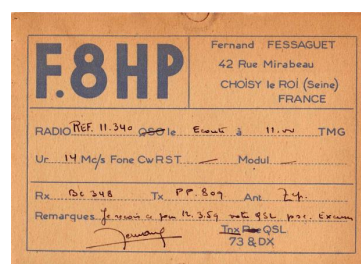 F.8HP
Fernand FESSAGUET
42 Rue Mirabeau
CHOISY le ROI (Seine)
FRANCE
RADIO REF. 11.340 QSO le Ecoute à 11.00 TMG
Ur 14 Mc/s Fone Cw RST — Modul —
Rx BC 348 Tx PP. 809 Ant Zep.
Remarques Je reçois ce jour 12.3.59 votre QSL
Tnx Pse QSL
73 & DX